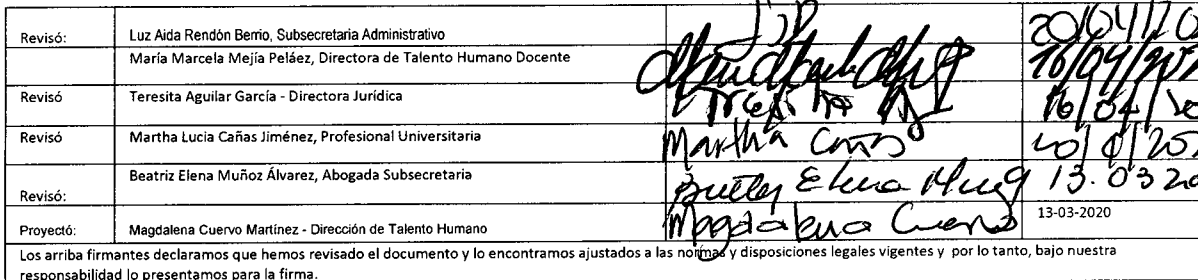 Revisó: Luz Aida Rendón Berrio, Subsecretaria Administrativo 20/04/20
María Marcela Mejía Peláez, Directora de Talento Humano Docente 16/04/202
Revisó Teresita Aguilar García - Directora Jurídica 16/04/20
Revisó Martha Lucia Cañas Jiménez, Profesional Universitaria Martha Cañas
Revisó: Beatriz Elena Muñoz Álvarez, Abogada Subsecretaria Elena 13.03 20
Proyectó: Magdalena Cuervo Martínez - Dirección de Talento Humano Magdalena Cuervo 13-03-2020
Los arriba firmantes declaramos que hemos revisado el documento y lo encontramos ajustados a las normas y disposiciones legales vigentes y por lo tanto, bajo nuestra
responsabilidad lo presentamos para la firma.